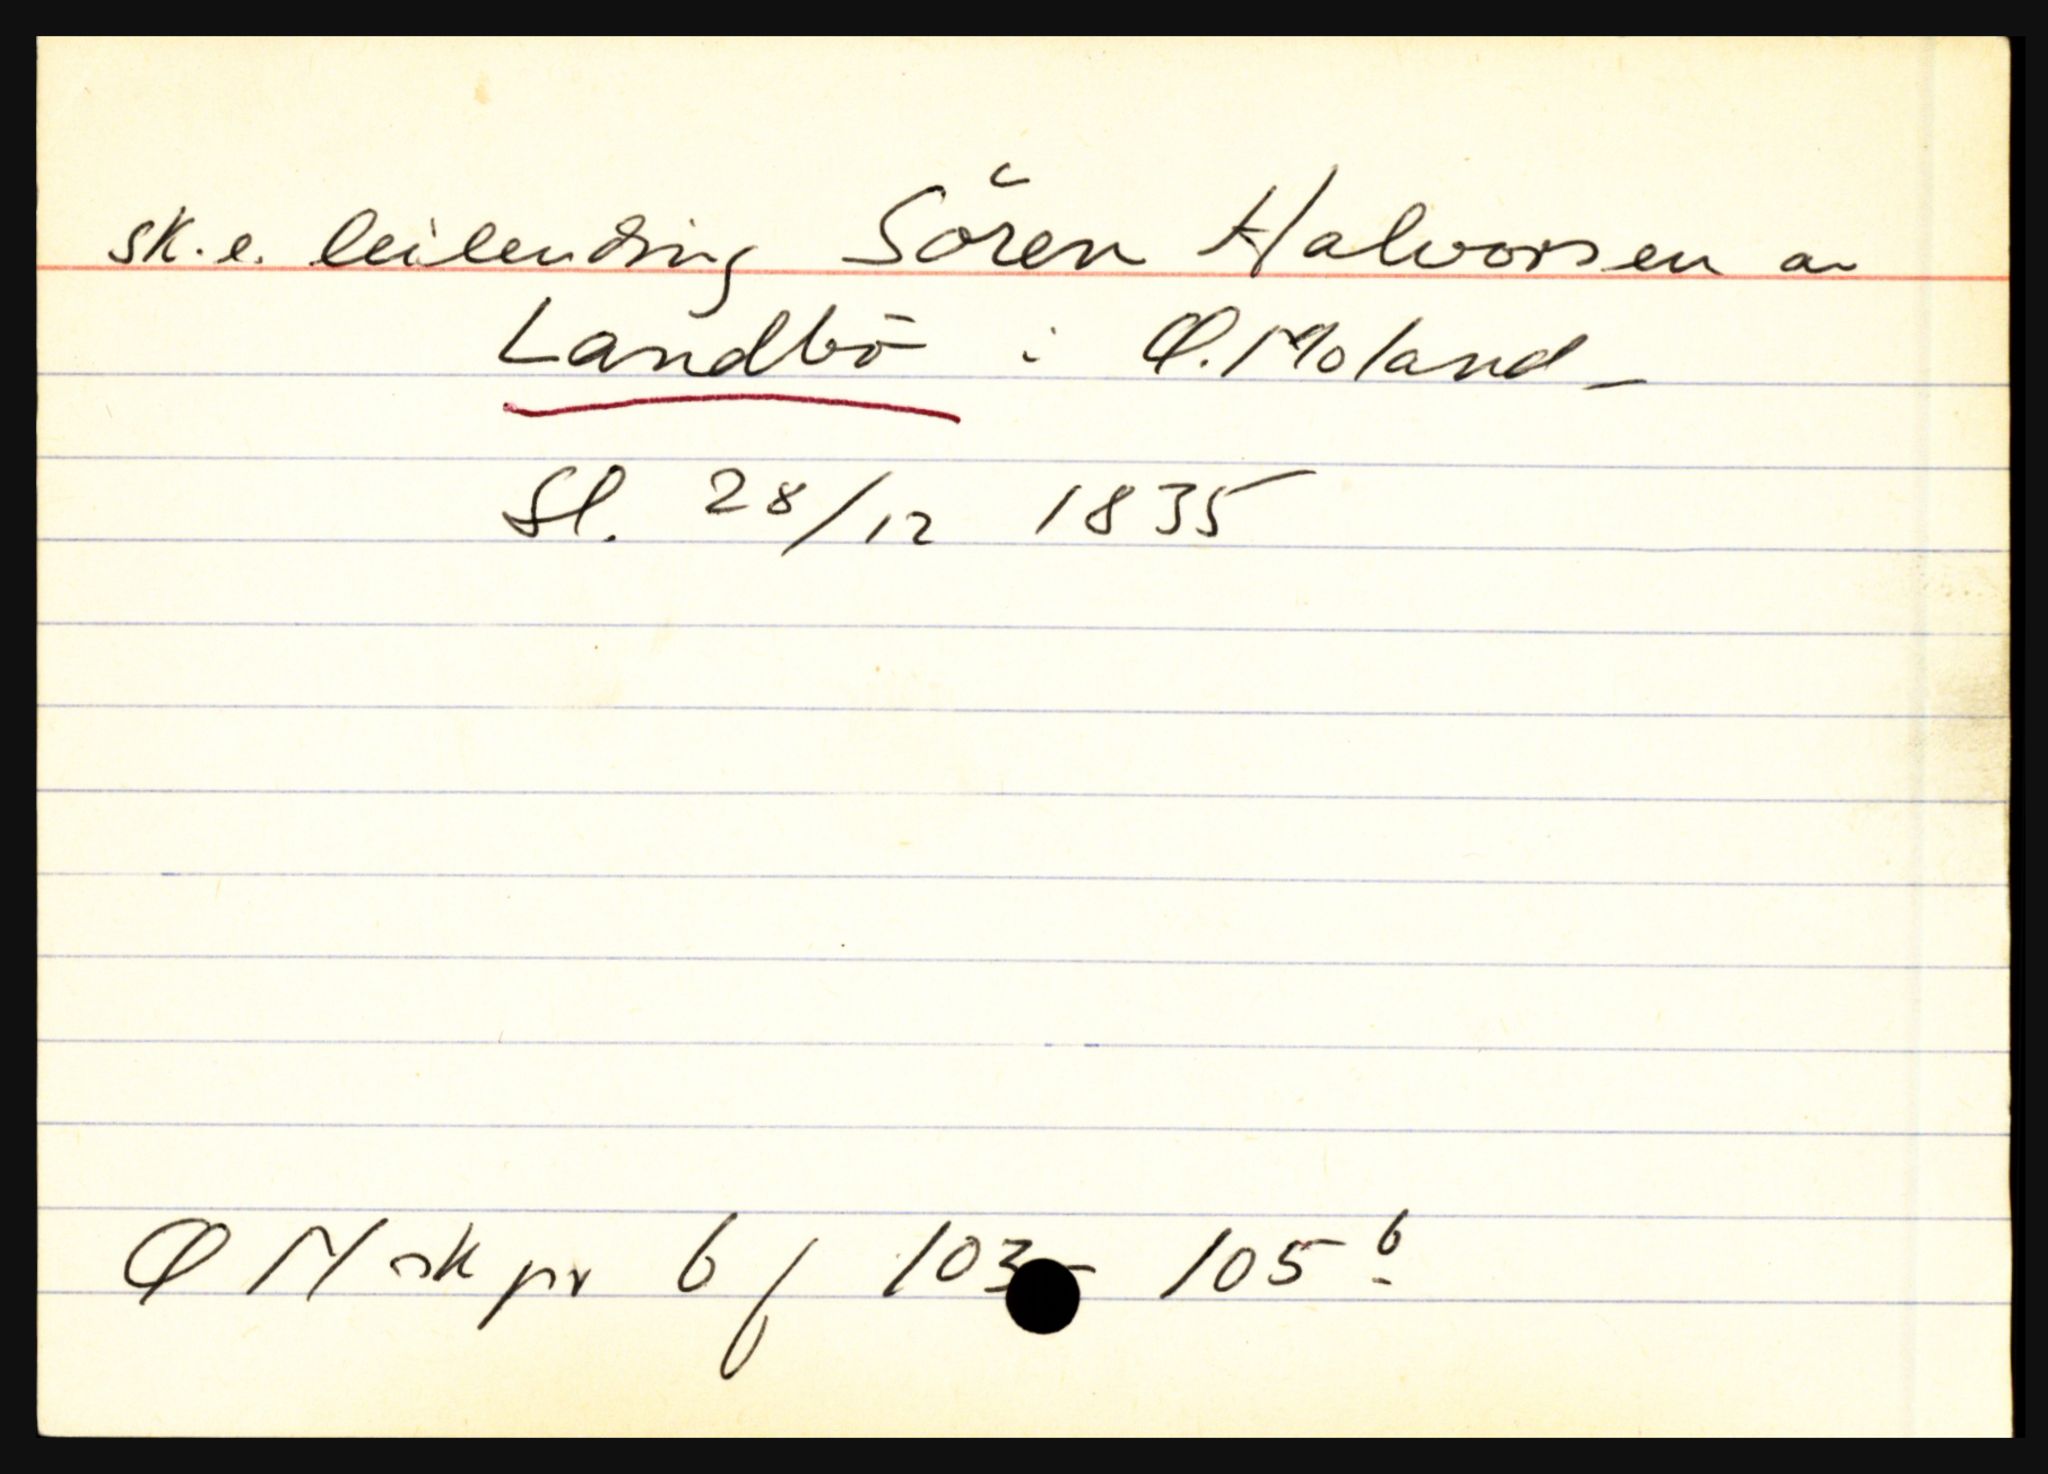 sk. e. leilending Sören Halvorsen av
Landbö i Ø. Moland –
Sl. 28/12 1835
Ø M sk pr 6 f 103 – 105 b